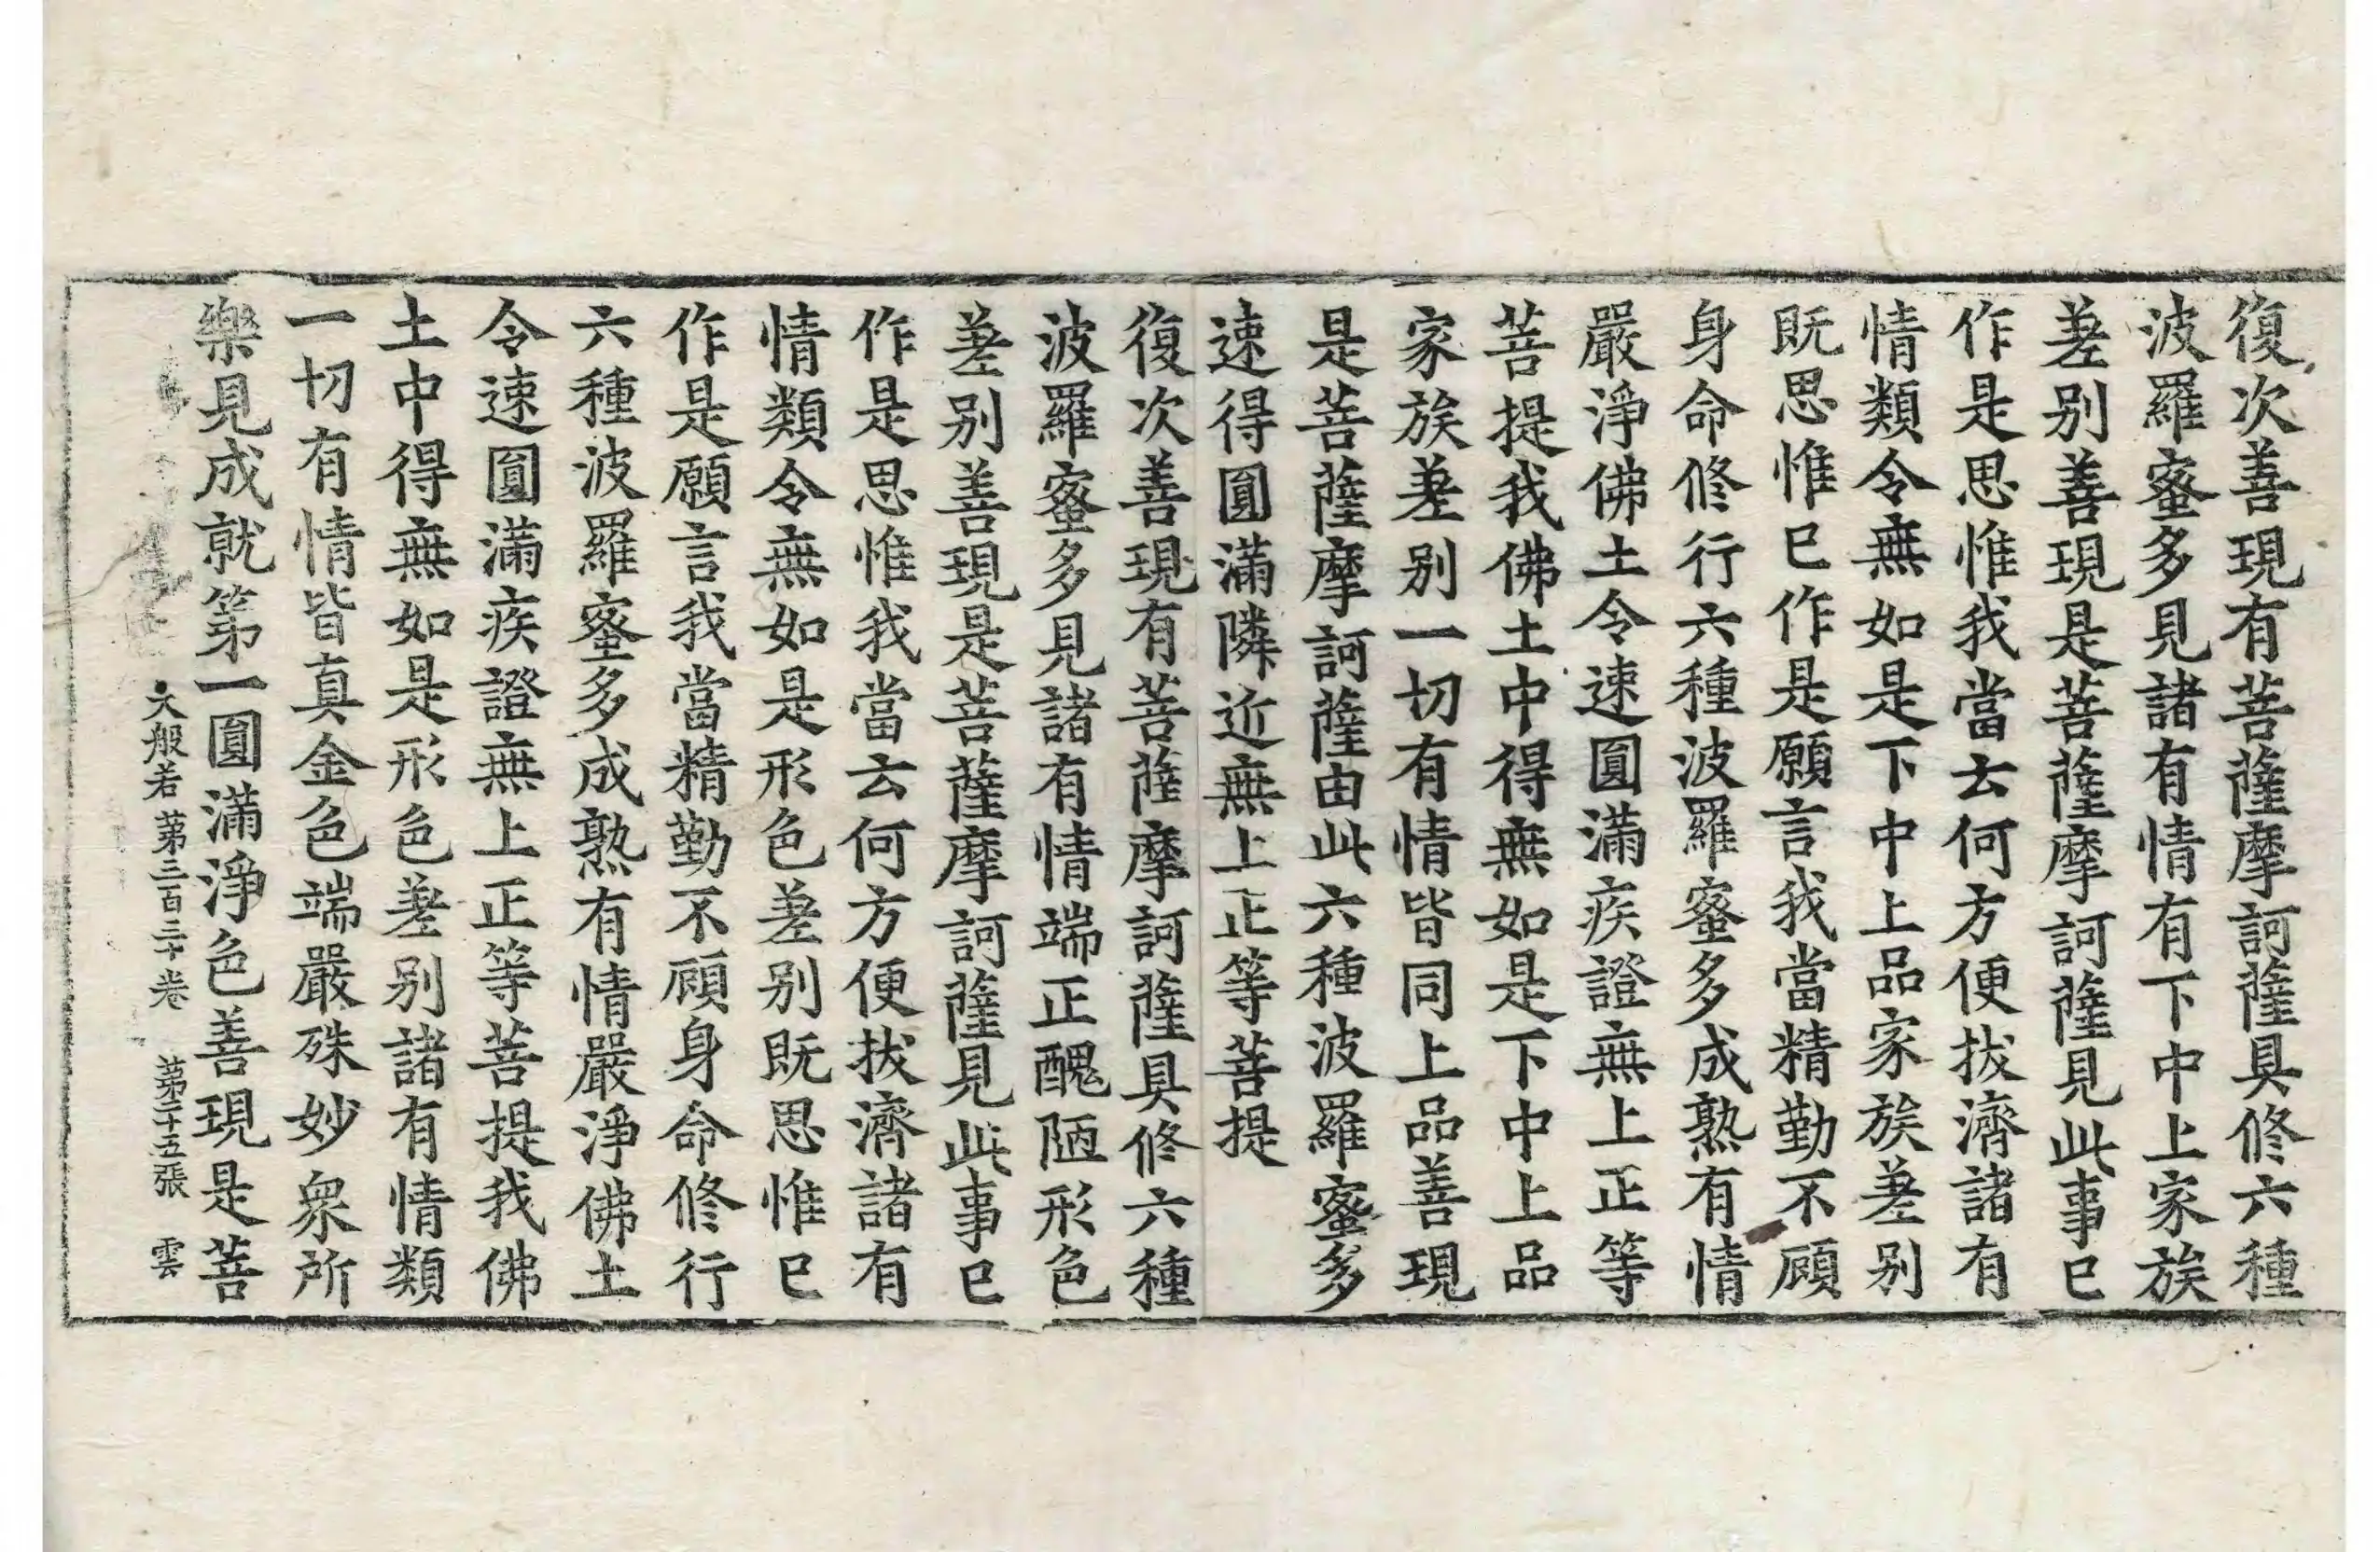 復次善現有菩薩摩訶薩具修六種
波羅蜜多見諸有情有下中上家族
差別善現是菩薩摩訶薩見此事已
作是思惟我當云何方便拔濟諸有
情類令無如是下中上品家族差別
既思惟已作是願言我當精勤不顧
身命修行六種波羅蜜多成熟有情
嚴淨佛土令速圓滿疾證無上正等
菩提我佛土中得無如是下中上品
家族差別一切有情皆同上品善現
是菩薩摩訶薩由此六種波羅蜜多
速得圓滿隣近無上正等菩提
復次善現有菩薩摩訶薩具修六種
波羅蜜多見諸有情端正醜陋形色
差別善現是菩薩摩訶薩見此事已
作是思惟我當云何方便拔濟諸有
情類令無如是形色差別既思惟已
作是願言我當精勤不顧身命修行
六種波羅蜜多成熟有情嚴淨佛土
令速圓滿疾證無上正等菩提我佛
土中得無如是形色差別諸有情類
一切有情皆真金色端嚴殊妙衆所
樂見成就第一圓滿淨色善現是菩
大般若第三百三十卷 第二十五張 雲